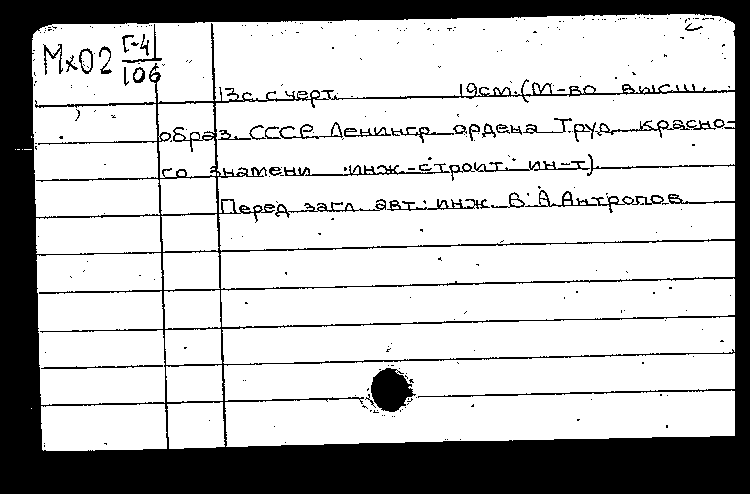 2
Мх02 Г-41
106
13с. с черт. 19см. (М-во высш.
образ. СССР. Ленингр. ордена Труд. красно-
го знамени инж.-строит. ин-т)
Перед загл. авт.: инж. В.А.Антропов.